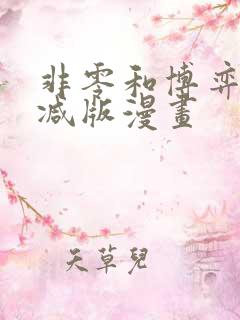 非零和博弈
减版漫畫
天草兒